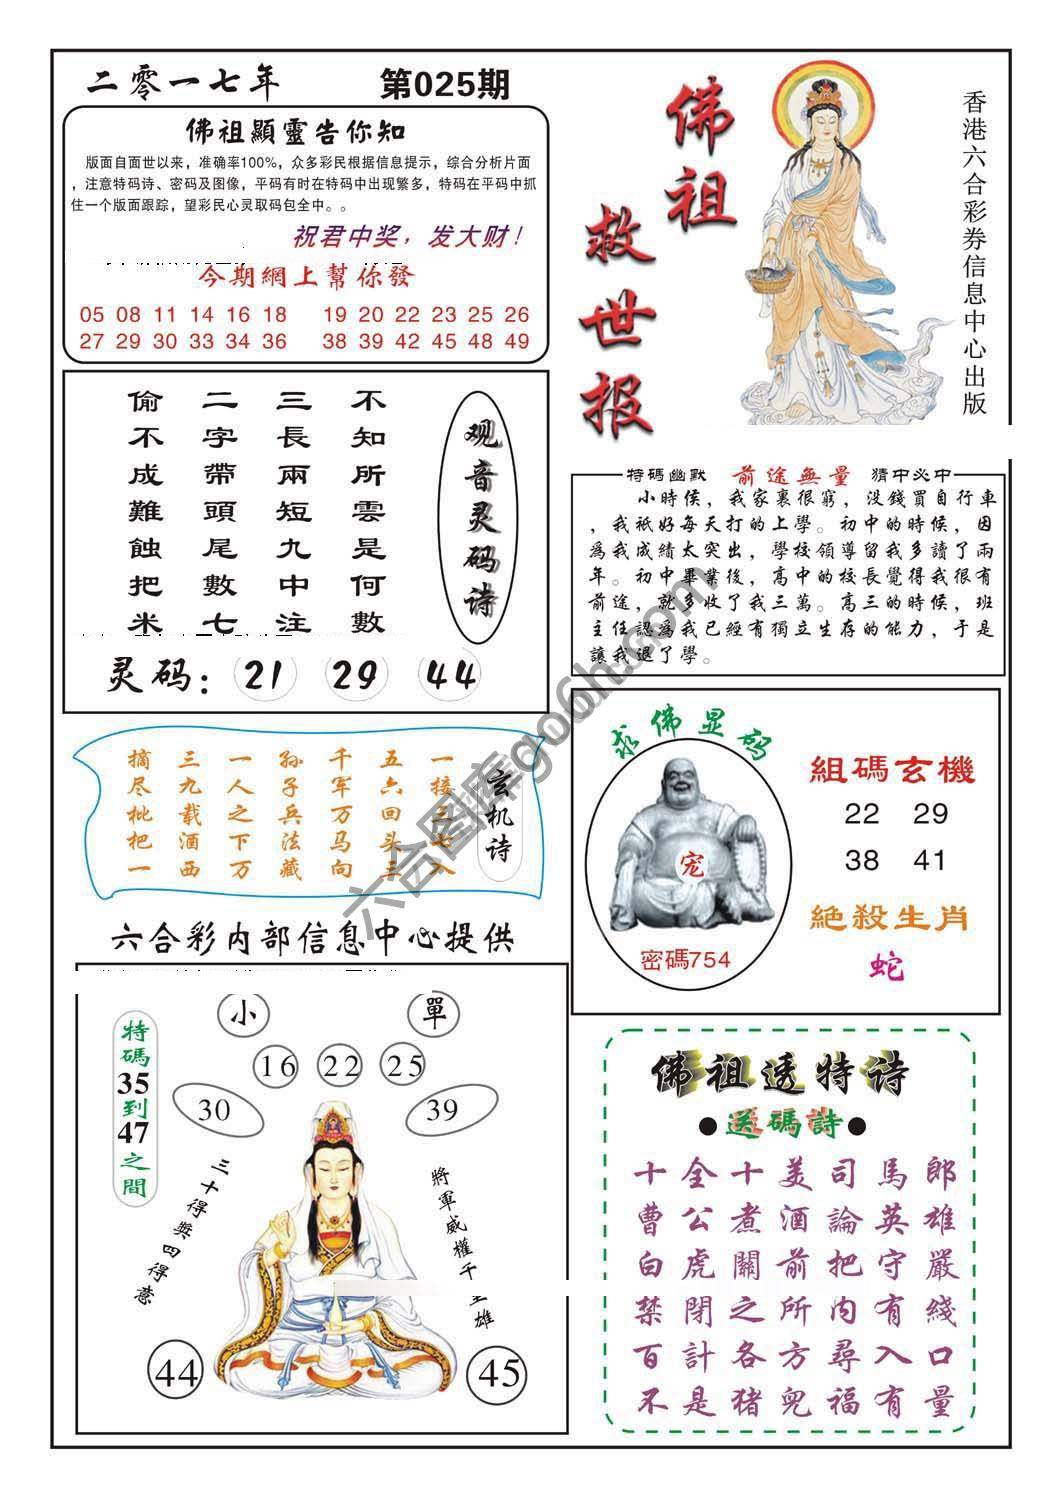 二零一七年
第025期
佛祖顯靈告你知
版面自面世以来，准确率100%，众多彩民根据信息提示，综合分析片面
，注意特码诗、密码及图像，平码有时在特码中出现繁多，特码在平码中抓
住一个版面跟踪，望彩民心灵取码包全中。。
祝君中奖，发大财！
今期網上幫你發
05 08 11 14 16 18 19 20 22 23 25 26
27 29 30 33 34 36 38 39 42 45 48 49
佛祖
救世报
香港六合彩券信息中心出版
观音灵码诗
不知所雲是何數
三長兩短九中注
二字帶頭尾數七
偷不成難蝕把米
灵码：21 29 44
特碼幽默 前途無量 猜中必中
小時侯，我家裏很窮，没錢買自行車
，我祇好每天打的上學。初中的時候，因
爲我成績太突出，學校領導留我多讀了兩
年。初中畢業後，高中的校長覺得我很有
前途，就多收了我三萬。高三的時候，班
主任認爲我已經有獨立生存的能力，于是
讓我退了學。
玄机诗
一接三七八
五六回头三
千军万马向
孙子兵法藏
一人之下万
三九载酒西
摘尽枇把一
求佛显码
宠
密碼754
組碼玄機
22 29
38 41
絶殺生肖
蛇
六合彩内部信息中心提供
小 單
16 22 25
30 39
特碼35到47之間
三十得獎四得意
將軍威權千
雄
44 45
佛祖透特诗
●送碼詩●
十全十美司馬郎
曹公煮酒論英雄
白虎關前把守嚴
禁閉之所内有綫
百計各方尋入口
不是猪兜福有量
六合图库go6h.com